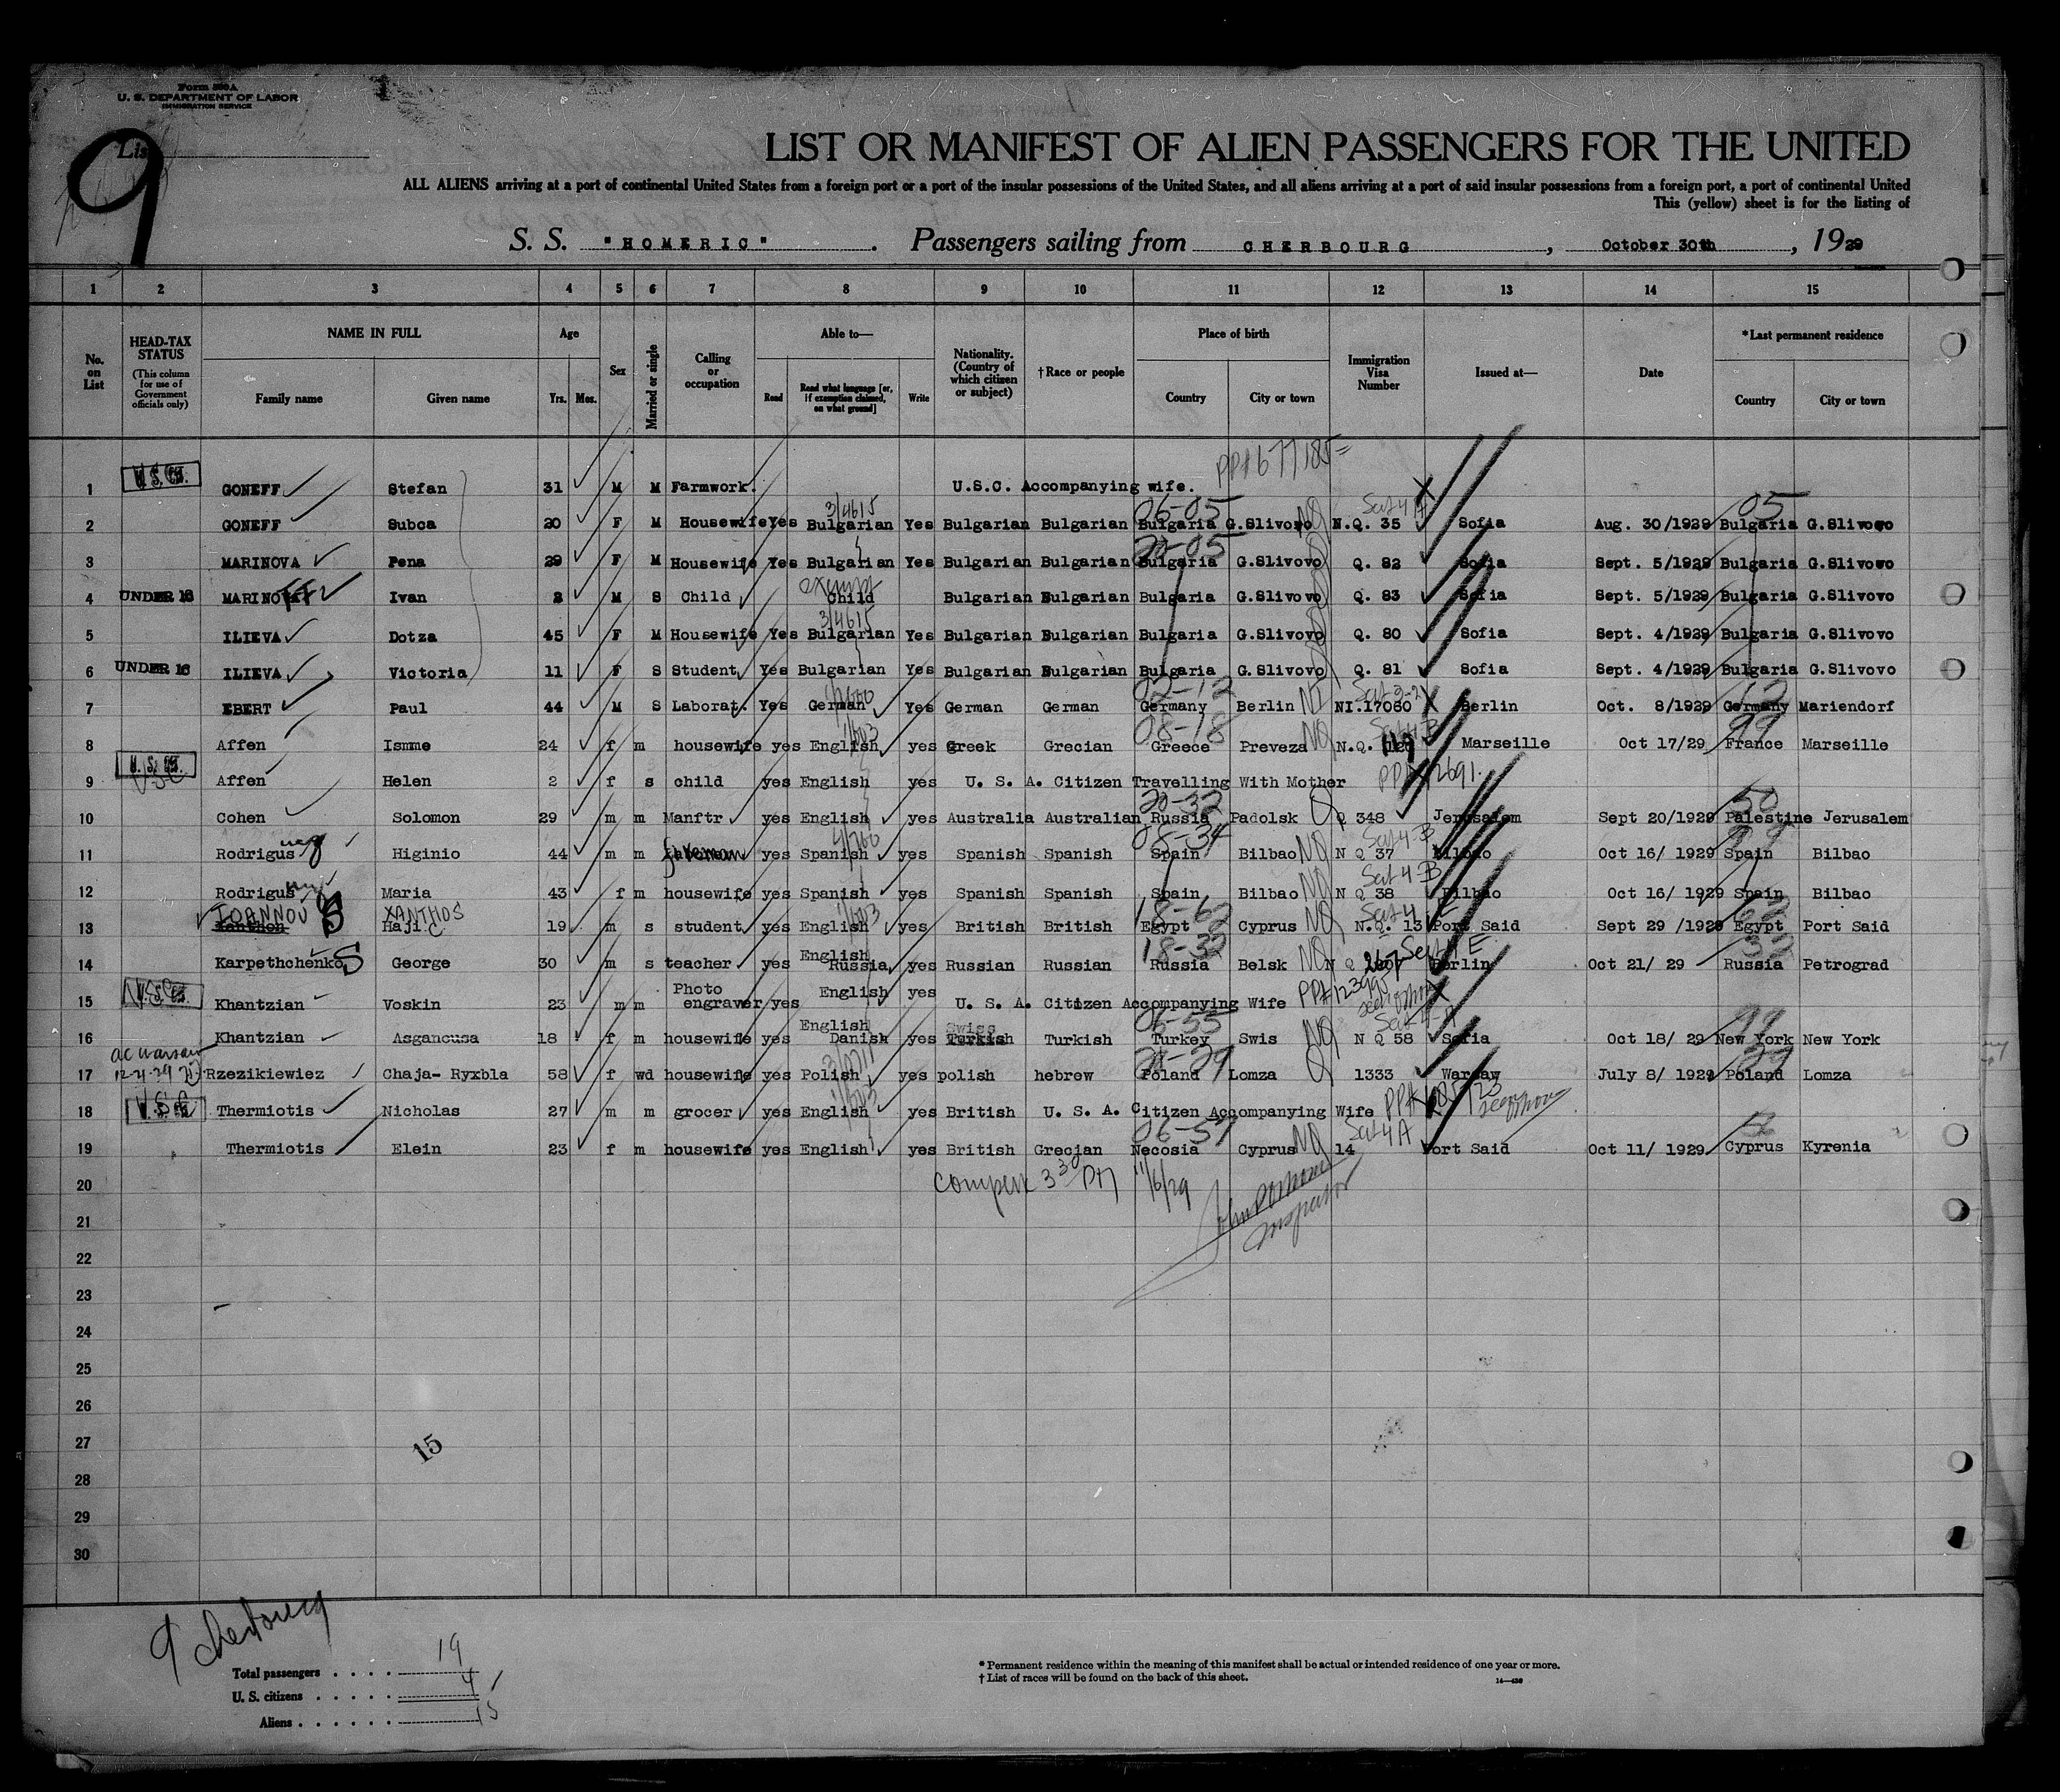 Form 500 A
U. S. DEPARTMENT OF LABOR
IMMIGRATION SERVICE
9
LIST OR MANIFEST OF ALIEN PASSENGERS FOR THE UNITED
ALL ALIENS arriving at a port of continental United States from a foreign port or a port of the insular possessions of the United States, and all aliens arriving at a port of said insular possessions from a foreign port, a port of continental United
This (yellow) sheet is for the listing of
S. S. "HOMERIC". Passengers sailing from CHERBOURG, October 30th, 1929
1 2 3 4 5 6 7 8 9 10 11 12 13 14 15
No. on List
HEAD-TAX STATUS (This column for use of Government officials only)
NAME IN FULL Family name Given name
Age Yrs. Mos.
Sex
Married or single
Calling or occupation
Able to— Read Read what language [or, if exemption claimed, on what ground] Write
Nationality. (Country of which citizen or subject)
†Race or people
Place of birth Country City or town
Immigration Visa Number
Issued at—
Date
*Last permanent residence Country City or town
PP# 677185
1 U.S.C. GONEFF Stefan 31 M M Farmwork. U.S.C. Accompanying wife.
3/4615 06-05 Sect 4A 05
2 GONEFF Subca 20 F M Housewife Yes Bulgarian Yes Bulgarian Bulgarian Bulgaria G.Slivovo NQ N.Q. 35 Sofia Aug. 30/1929 Bulgaria G.Slivovo
20-05
3 MARINOVA Pena 29 F M Housewife Yes Bulgarian Yes Bulgarian Bulgarian Bulgaria G.Slivovo Q. 82 Sofia Sept. 5/1929 Bulgaria G.Slivovo
exempt
4 UNDER 16 MARINOFF Ivan 2 M S Child Child Bulgarian Bulgarian Bulgaria G.Slivovo Q. 83 Sofia Sept. 5/1929 Bulgaria G.Slivovo
3/4615
5 ILIEVA Dotza 45 F M Housewife Yes Bulgarian Yes Bulgarian Bulgarian Bulgaria G.Slivovo Q. 80 Sofia Sept. 4/1929 Bulgaria G.Slivovo
6 UNDER 16 ILIEVA Victoria 11 F S Student Yes Bulgarian Yes Bulgarian Bulgarian Bulgaria G.Slivovo Q. 81 Sofia Sept. 4/1929 Bulgaria G.Slivovo
02-12 12
7 EBERT Paul 44 M S Laborat. Yes German Yes German German Germany Berlin NI NI.17060 Berlin Oct. 8/1929 Germany Mariendorf
08-18 Sect 4B 99
8 Affen Ismme 24 f m housewife yes English yes Greek Grecian Greece Preveza NQ N.Q. 119 Marseille Oct 17/29 France Marseille
9 U.S.C. Affen Helen 2 f s child yes English yes U. S. A. Citizen Travelling With Mother
20-32 50
10 Cohen Solomon 29 m m Manftr yes English yes Australia Australian Russia Padolsk Q Q 348 Jerusalem Sept 20/1929 Palestine Jerusalem
08-34 Sect 4-B 99
11 Rodrigus Higinio 44 m m yes Spanish yes Spanish Spanish Spain Bilbao NQ N Q 37 Bilbao Oct 16/ 1929 Spain Bilbao
Sect 4-B
12 Rodrigus Maria 43 f m housewife yes Spanish yes Spanish Spanish Spain Bilbao NQ N Q 38 Bilbao Oct 16/ 1929 Spain Bilbao
IOANNOU XANTHOS 18-62 62
13 Xanthon Haji C 19 m s student yes English yes British British Egypt Cyprus NQ N.Q. 13 Port Said Sept 29 /1929 Egypt Port Said
English 18-32 267 Sect 4 E 32
14 Karpethchenko S George 30 m s teacher yes Russia yes Russian Russian Russia Belsk NQ N Q Berlin Oct 21/ 29 Russia Petrograd
15 U.S.C. Khantzian Voskin 23 m m Photo engraver yes English yes U. S. A. Citizen Accompanying Wife
English Swiss 06-55 99
16 Khantzian Asgancusa 18 f m housewife yes Danish yes Turkish Turkish Turkey Swis NQ N Q 58 Sofia Oct 18/ 29 New York New York
20-29 29
17 Rzezikiewiez Chaja- Ryxbla 58 f wd housewife yes Polish yes polish hebrew Poland Lomza Q 1333 Warsaw July 8/ 1929 Poland Lomza
18 U.S.C. Thermiotis Nicholas 27 m m grocer yes English yes British U. S. A. Citizen Accompanying Wife
06-57 Sect 4A
19 Thermiotis Elein 23 f m housewife yes English yes British Grecian Necosia Cyprus NQ 14 Port Said Oct 11/ 1929 Cyprus Kyrenia
20 3 30 PM 11/6/29
Inspector
21
22
23
24
25
26
27
15
28
29
30
9 Cherbourg
Total passengers . . . . . 19
U. S. citizens . . . . . 4
Aliens . . . . . . 15
* Permanent residence within the meaning of this manifest shall be actual or intended residence of one year or more.
† List of races will be found on the back of this sheet.